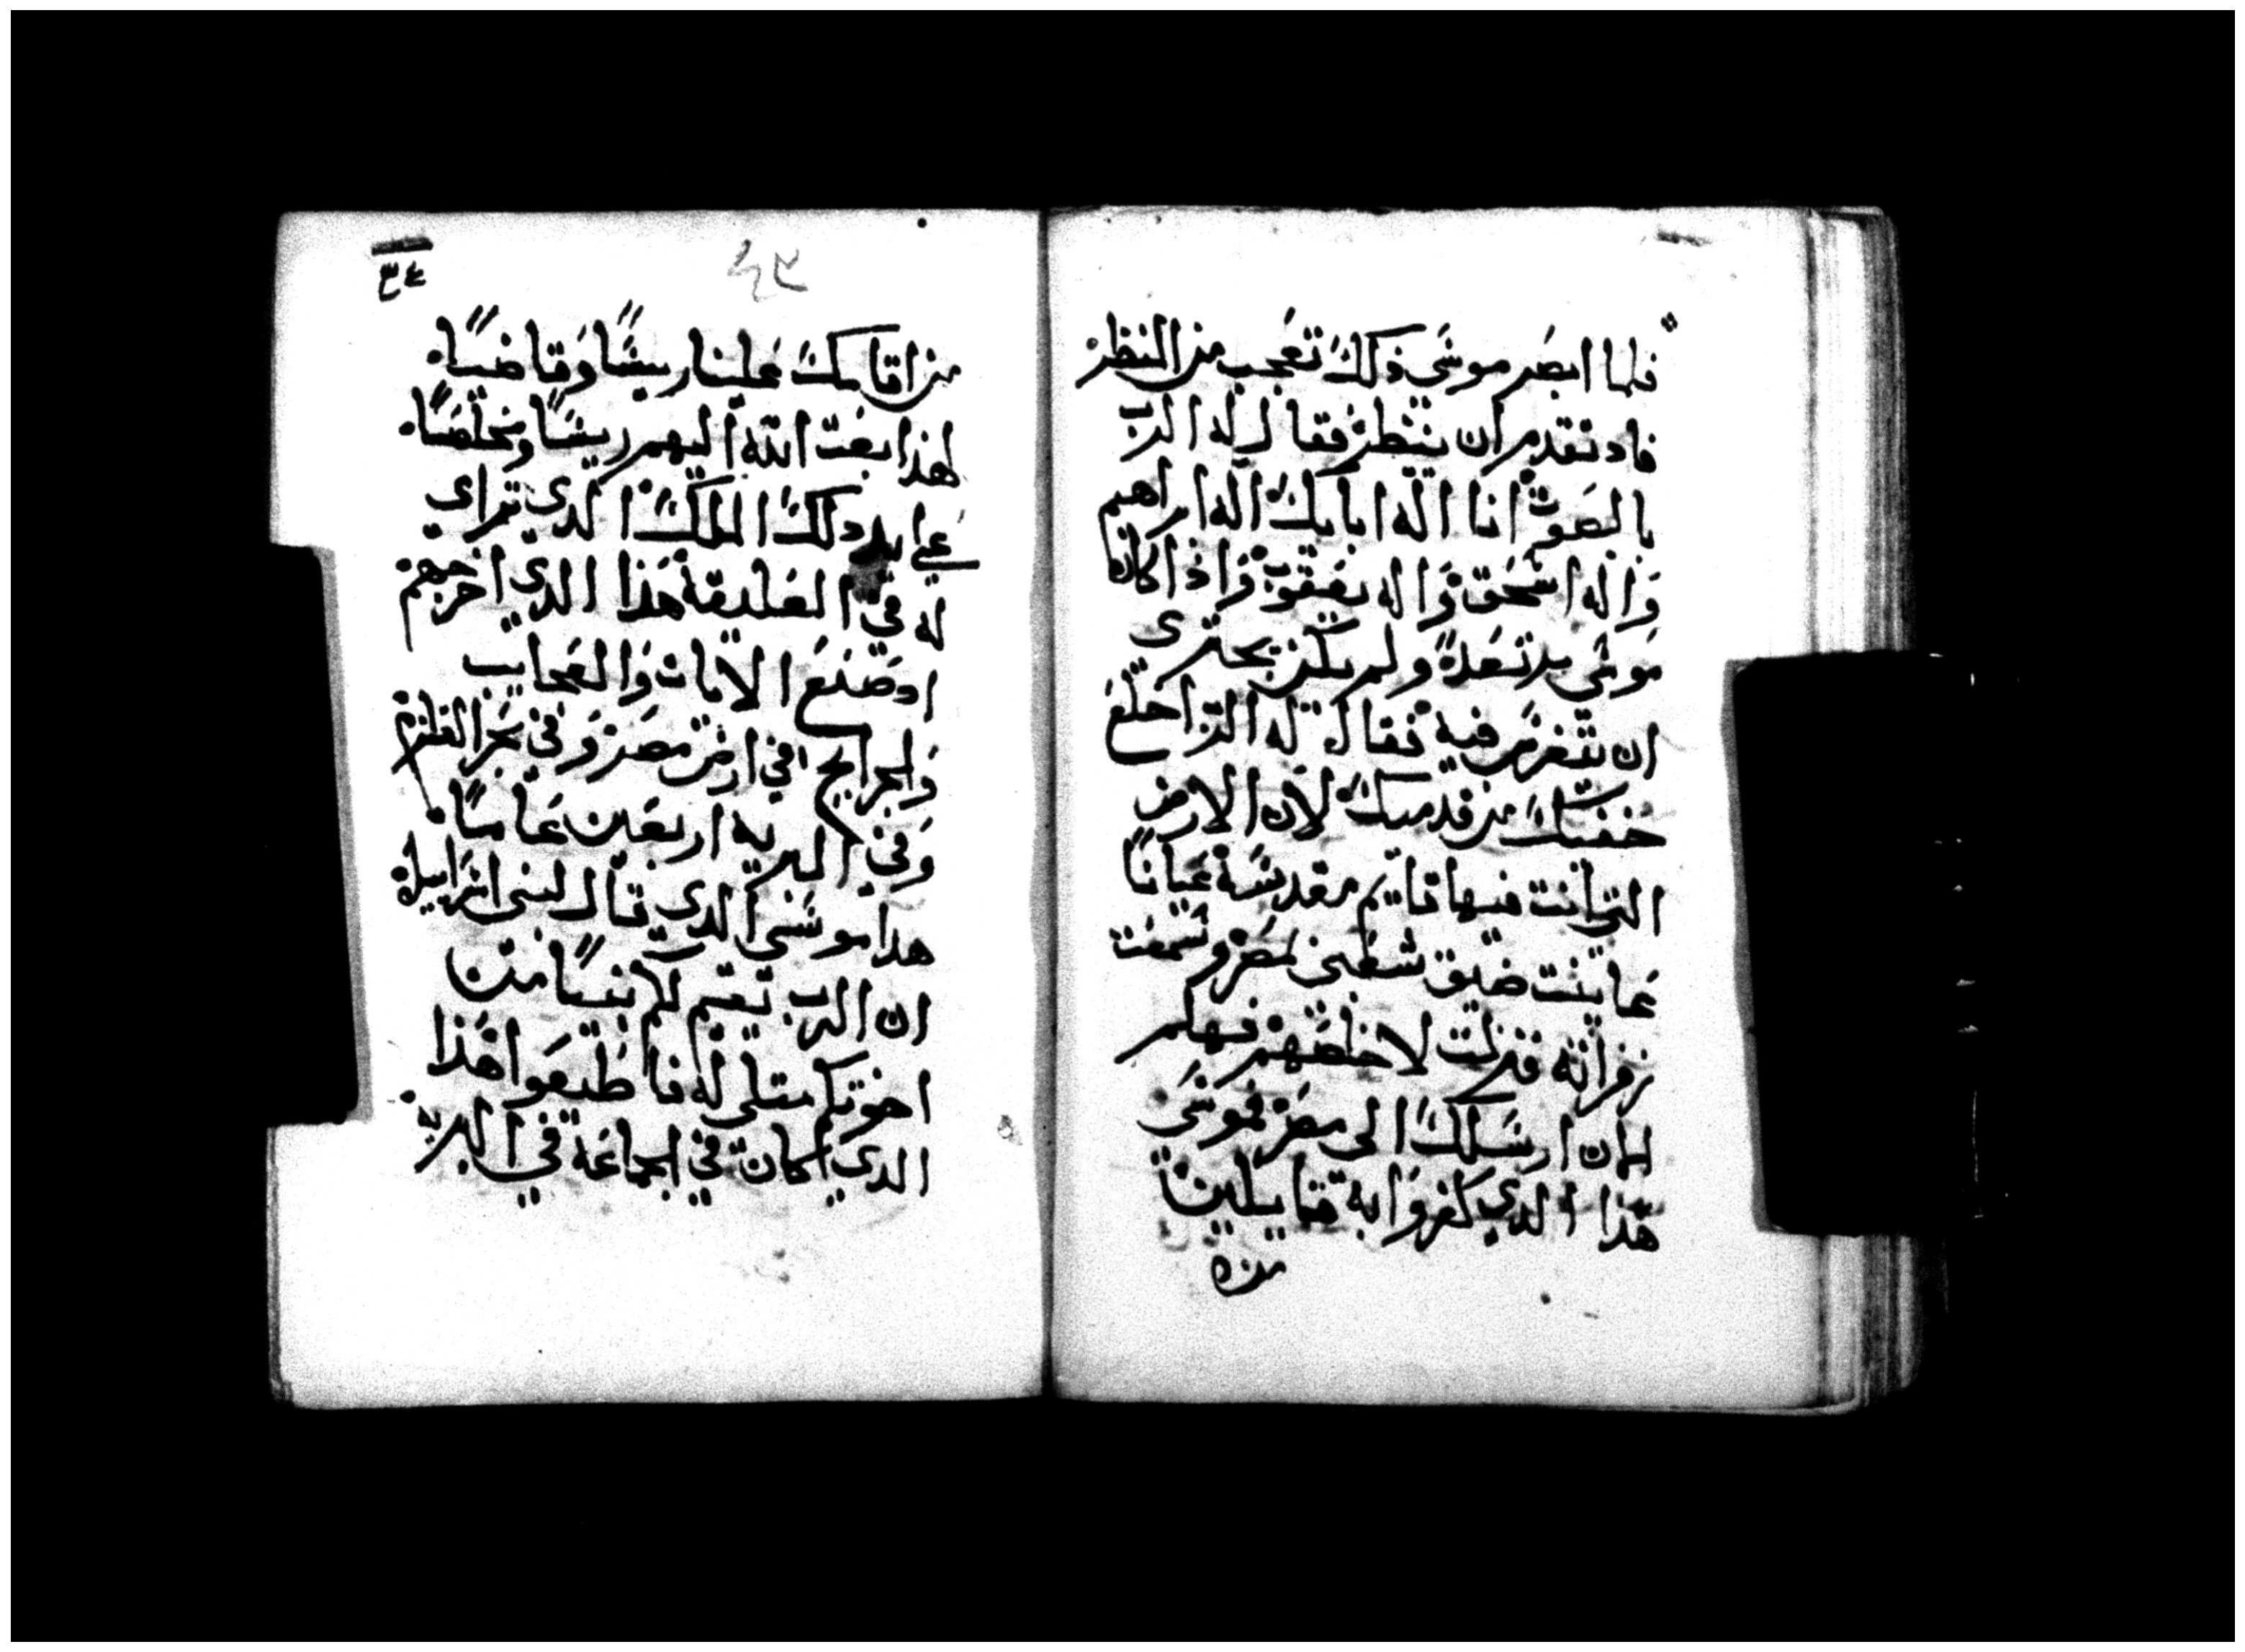 فلما ابصر موسي ذلك تعجب من النظر
فاد تقدم ان ينظر فقال له الرب
بالصوت انا اله ابايك اله ابراهيم
واله اسحق واله يعقوب واذا كان
موسي يرتعد ولم يكن يجتري
ان يتفرس فيه فقال له الرب اخلع
خفيك من قدميك لان الارض
التي انت فيها قايم مقدسة عيانا
عاينت ضيق شعبي بمصر وسمعت
زفراته فنزلت لاخلصهم فهلم
الان ارسلك الى مصر فموسي
هذا الدي كفروا به قايلين
من
٣٤
٤٩
من اقامك علينا ريسا وقاضيا
لهذا بعت الله اليهم ريسا ومخلصا
على يد دلك الملك الدي تراي
له في العليقة هذا الدي اخرجهم
اد صنع الايات والعجايب
والجرايح في ارض مصر وفي بحر القلزم
وفي البريه اربعين عاما
هدا موسي الدي قال لبني اسراييل
ان الرب يقيم لكم نبيا من
اخوتكم متلي له فاطيعوا هذا
الدي كان في الجماعة في البريه